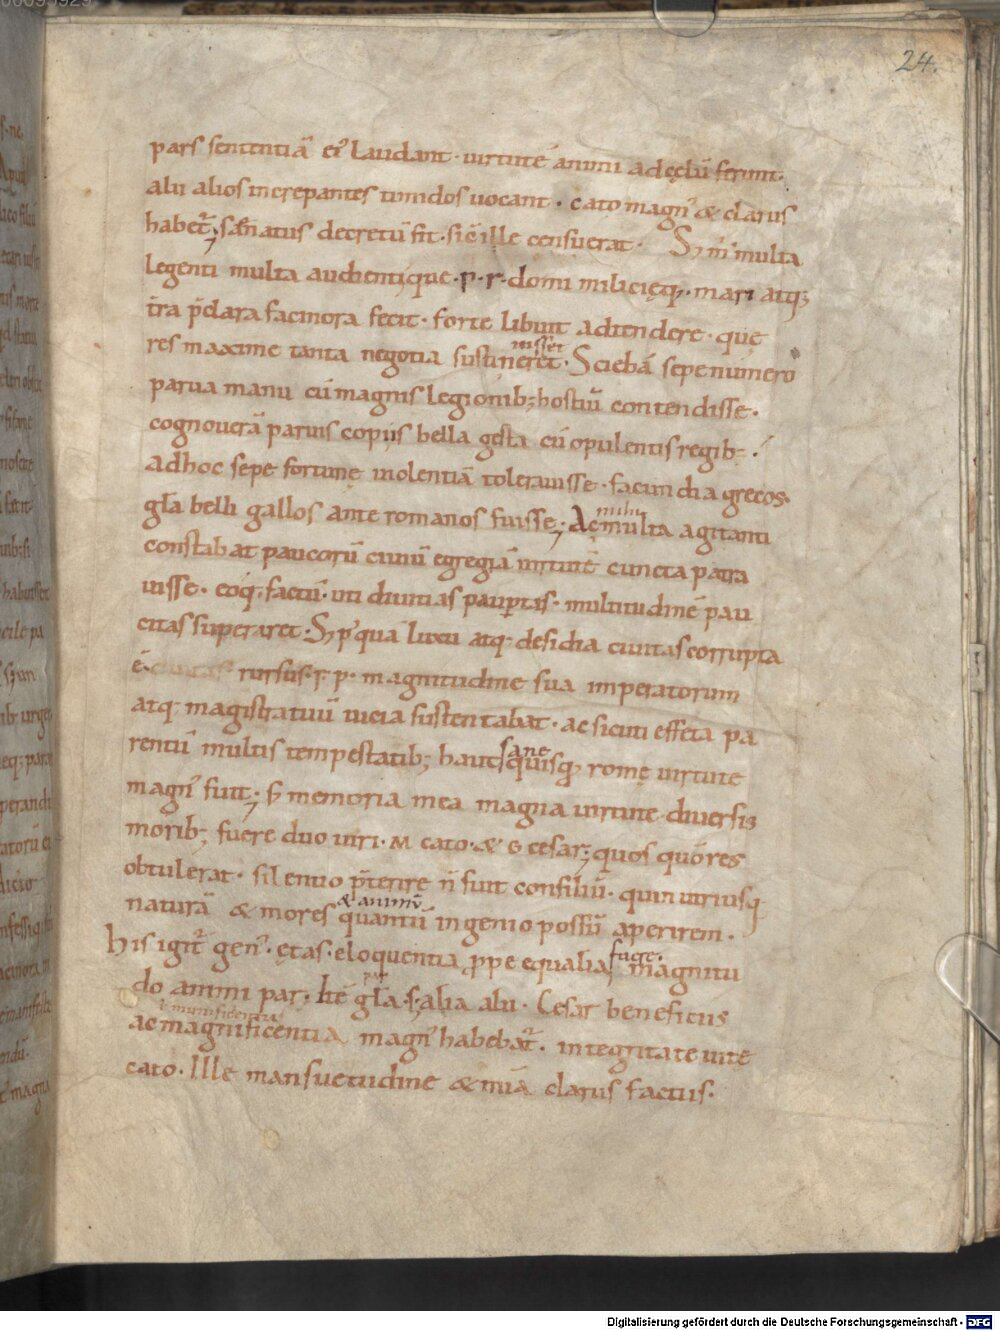 24.
pars sententiā ei᷒ laudant · uirtutē animi ad cęlū ferunt ·
alii alios increpantes timidos uocant · cato magn᷒ & clarus
habet̄; senatus decretū fit · sic̄ ille censuerat · S; m̄ multa
legenti multa audientiq́ue · p · r · domi milicięq; · mari atq;
t̄ra p̄clara facinora fecit · forte libuit adtendere · quę
res maxime tanta negotia sustineret · Sciebā sepe numero
parua manu cū magnis legionib; hostiū contendisse ·
cognouerā paruis copiis bella gesta cū opulentis regib; ·
Adhoc sepe fortunę uiolentiā tolerauisse · facundia grecos ·
gl̄a belli gallos ante romanos fuisse; Ac mihi multa agitanti
constabat paucorū ciuiū egregiā uirtutē cuncta patra
uisse · eoq; factū · uti diuitias paup̱tas · multitudinē pau
citas superaret · S; p᷒quā luxu atq; desidia ciuitas corrupta
ē · ciuitas rursus · r p · magnitudine sua imperatorum
atq; magistratuū uicia sustentabat · ac sicuti effeta pa
rentū multis tempestatib; haut sane quisq; rome uirtute
magn᷒ fuit; s; memoria mea magna uirtute diuersis
morib; fuere duo uiri · M cato · & G cesar; quos quō res
obtulerat · silentio p̄terire n̄ fuit consiliū · quin utriusq;
naturā & mores & animū quantū ingenio possū aperirem ·
his igit̄ gen᷒ · ętas · eloquentia prope equalia fuere · magnitu
do animi par · itē gl̄a · s; alia alii · Cesar beneficiis
ac magnificentia magn᷒ habebat̄ · integritate uite
cato · Ille mansuetudine & mīa clarus factus ·
Digitalisierung gefördert durch die Deutsche Forschungsgemeinschaft - DFG